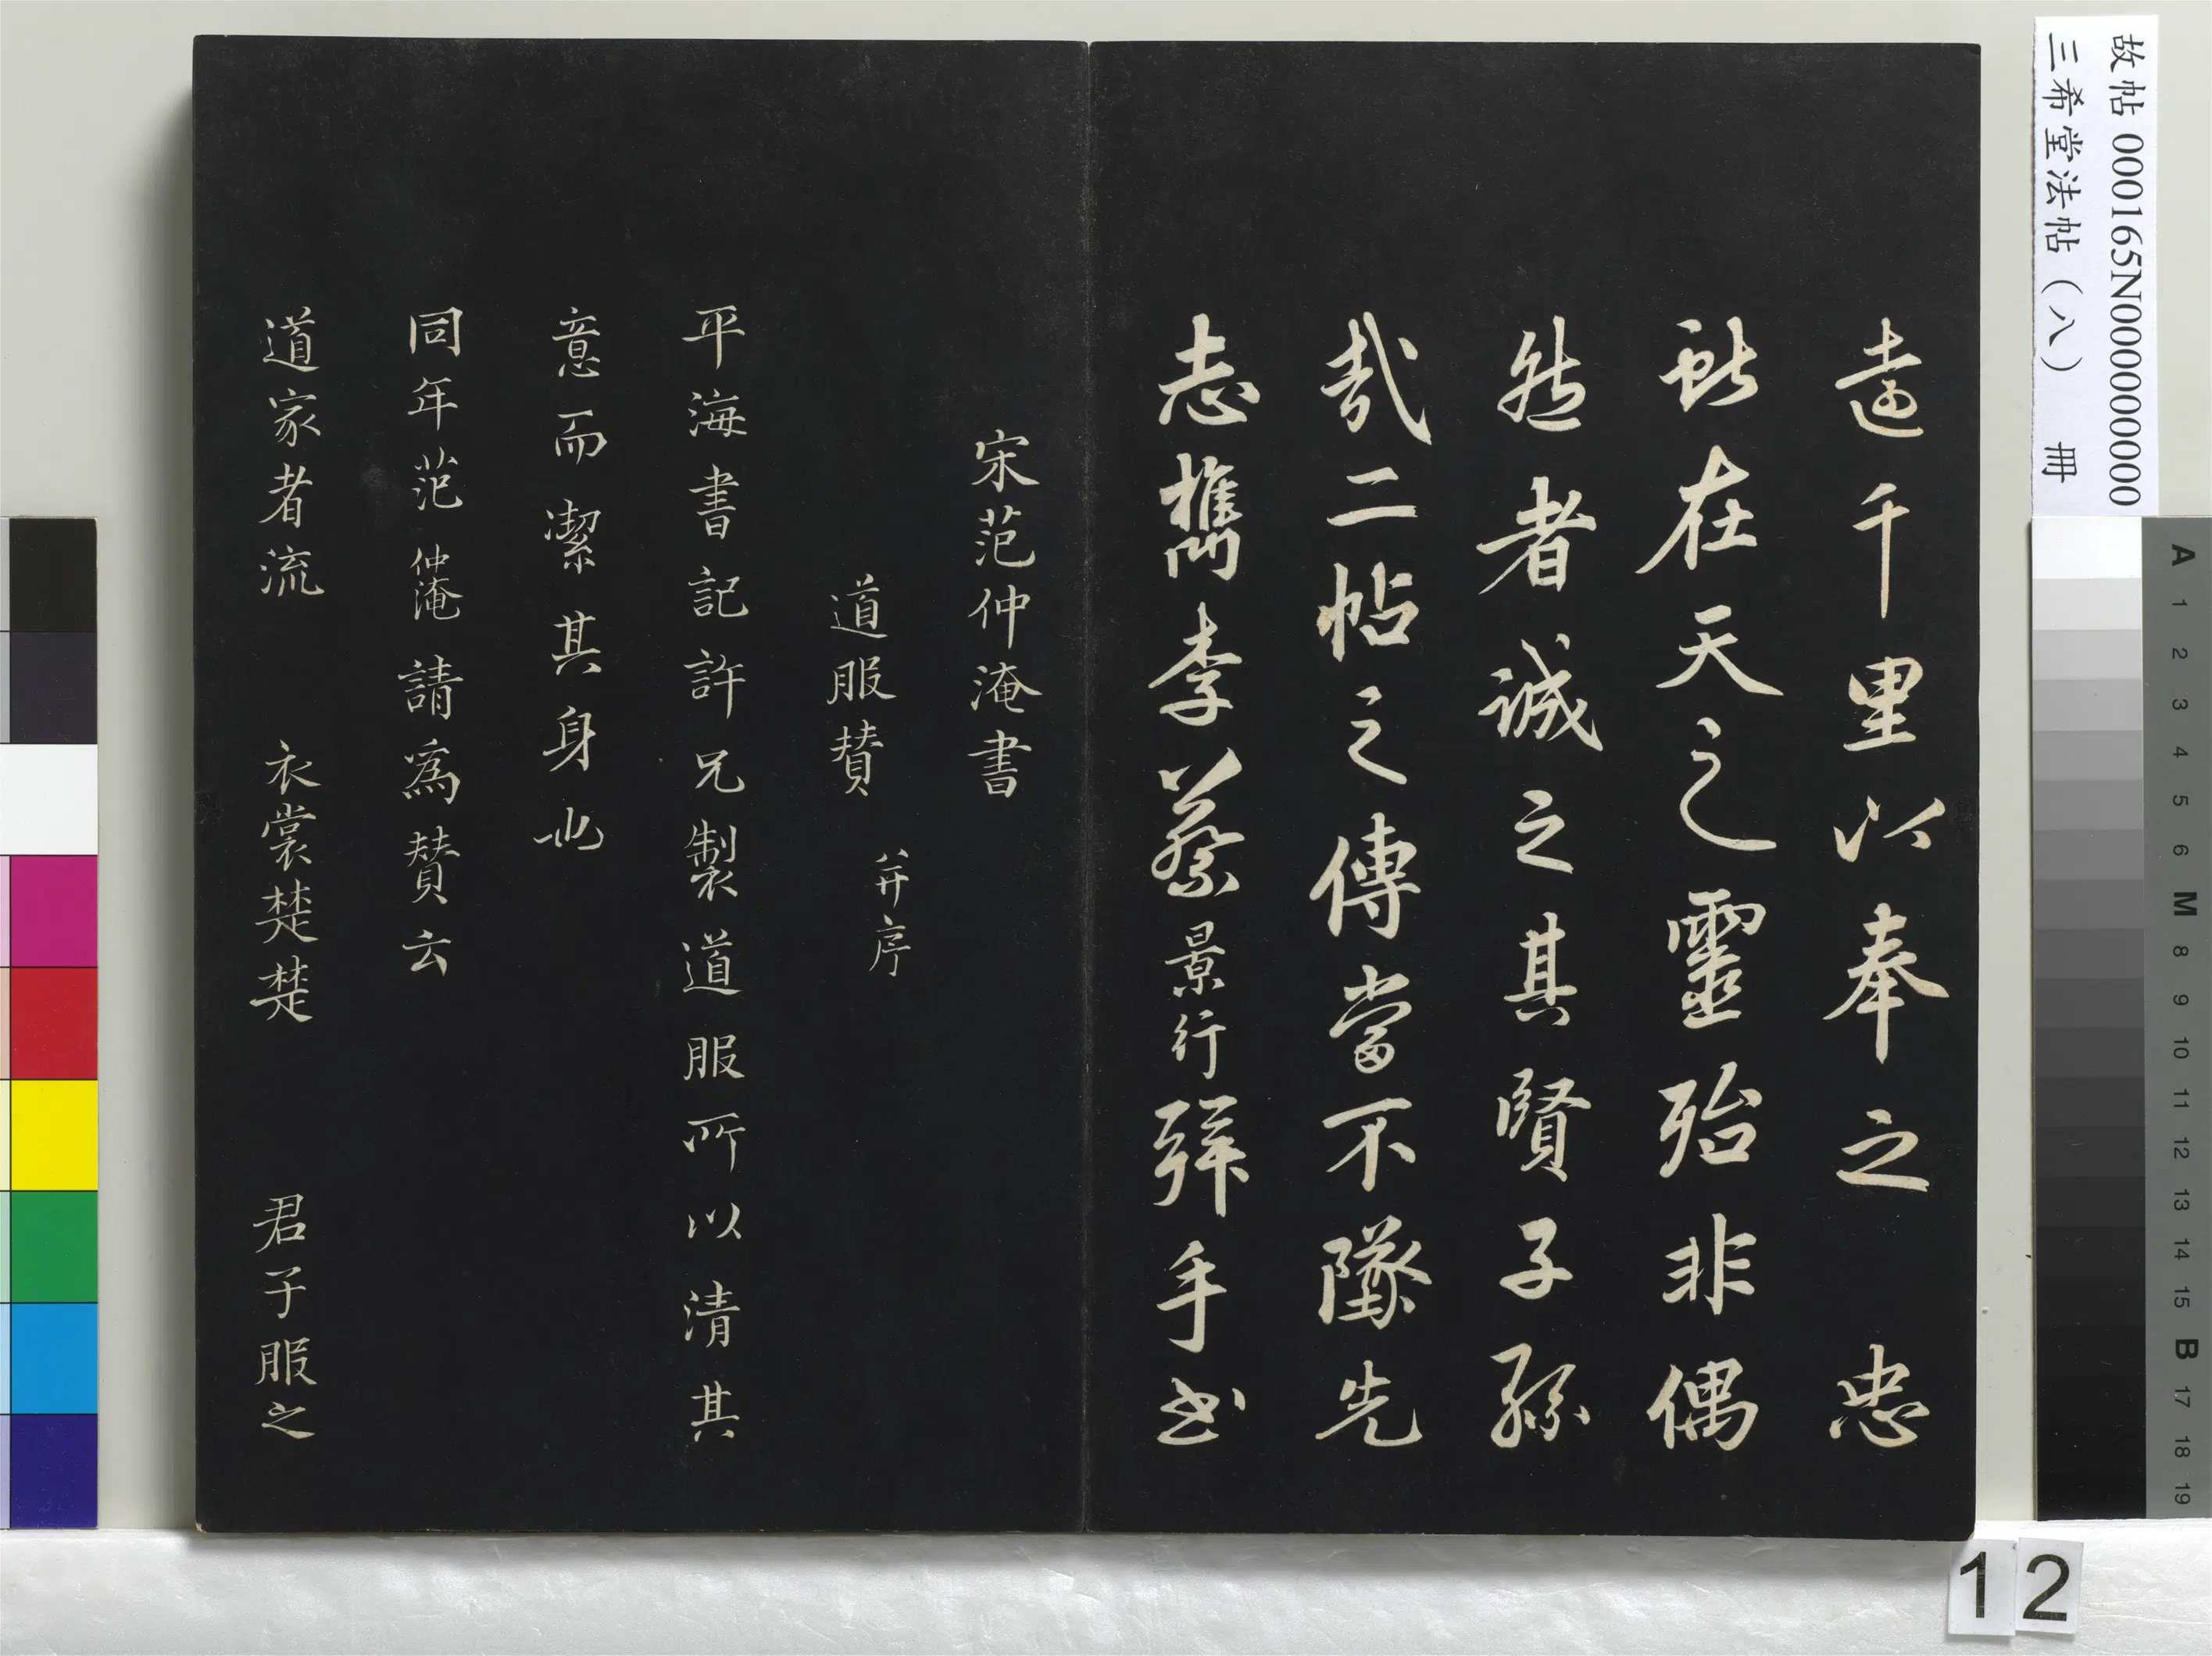 故帖 000165N000000000
三希堂法帖（八） 冊
遠千里以奉之 忠
獻在天之靈殆非偶
然者誠之其賢子孫
哉二帖之傳當不墜先
志檇李蔡景行拜手書
宋范仲淹書
道服贊 并序
平海書記許兄製道服所以清其
意而潔其身也
同年范仲淹請為贊云
道家者流 衣裳楚楚 君子服之
12
A 1 2 3 4 5 6 M 8 9 10 11 12 13 14 15 B 17 18 19